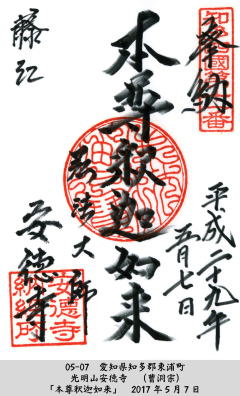 奉納
平成二十九年
五月七日
本尊釈迦如来
弘法大師
安徳寺
藤江
安徳寺
納経所
05-07 愛知県知多郡東浦町
光明山安徳寺 (曹洞宗)
「本尊釈迦如来」 2017年5月7日